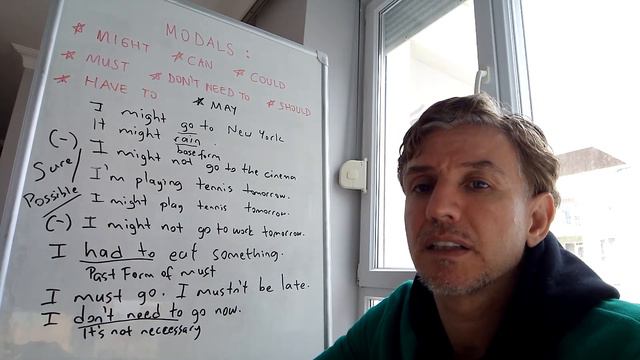 MODALS:
* MIGHT * CAN * COULD
* MUST * DON'T NEED TO * SHOULD
* HAVE TO * MAY
I might go to New York
It might rain.
base form
(-) I might not go to the cinema
Sure/ I'm playing tennis tomorrow.
Possible/ I might play tennis tomorrow.
(-) I might not go to work tomorrow.
I had to eat something.
Past Form of must
I must go. I mustn't be late.
I don't need to go now.
It's not necessary